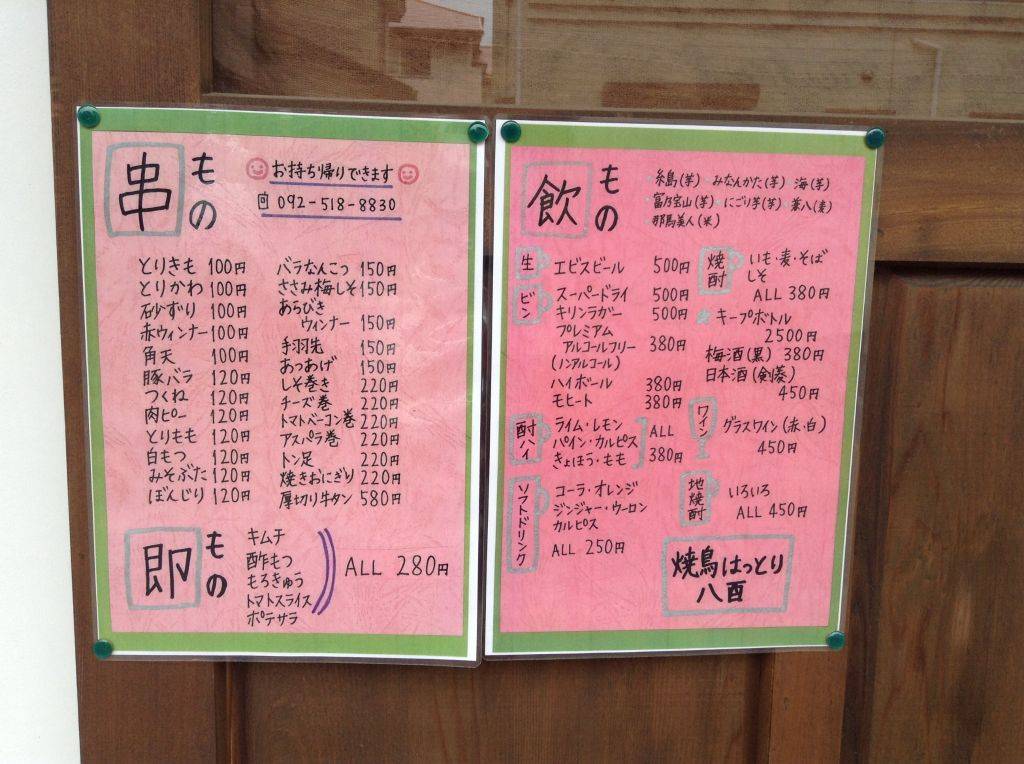 串もの
お持ち帰りできます
092-518-8830
とりきも 100円
とりかわ 100円
砂ずり 100円
赤ウィンナー 100円
角天 100円
豚バラ 120円
つくね 120円
肉ピー 120円
とりもも 120円
白もつ 120円
みそぶた 120円
ぼんじり 120円
バラなんこつ 150円
ささみ梅しそ 150円
あらびき
ウィンナー 150円
手羽先 150円
あつあげ 150円
しそ巻き 220円
チーズ巻 220円
トマトベーコン巻 220円
アスパラ巻 220円
トン足 220円
焼きおにぎり 220円
厚切り牛タン 580円
即もの
キムチ
酢もつ
もろきゅう
トマトスライス
ポテサラ
ALL 280円
飲もの
糸島(芋)・みなんかた(芋)・海(芋)
富乃宝山(芋)・にごり芋(芋)・兼八(麦)
那馬美人(米)
生 エビスビール 500円
ビン スーパードライ 500円
キリンラガー 500円
プレミアム
アルコールフリー 380円
(ノンアルコール)
ハイボール 380円
モヒート 380円
酎ハイ
ライム・レモン
パイン・カルピス
きょほう・もも
ALL
380円
ソフトドリンク
コーラ・オレンジ
ジンジャー・ウーロン
カルピス
ALL 250円
焼酎
いも・麦・そば
しそ
ALL 380円
キープボトル
2500円
梅酒(黒) 380円
日本酒(剣菱)
450円
ワイン
グラスワイン(赤・白)
450円
地焼酎
いろいろ
ALL 450円
焼鳥はっとり
八酉